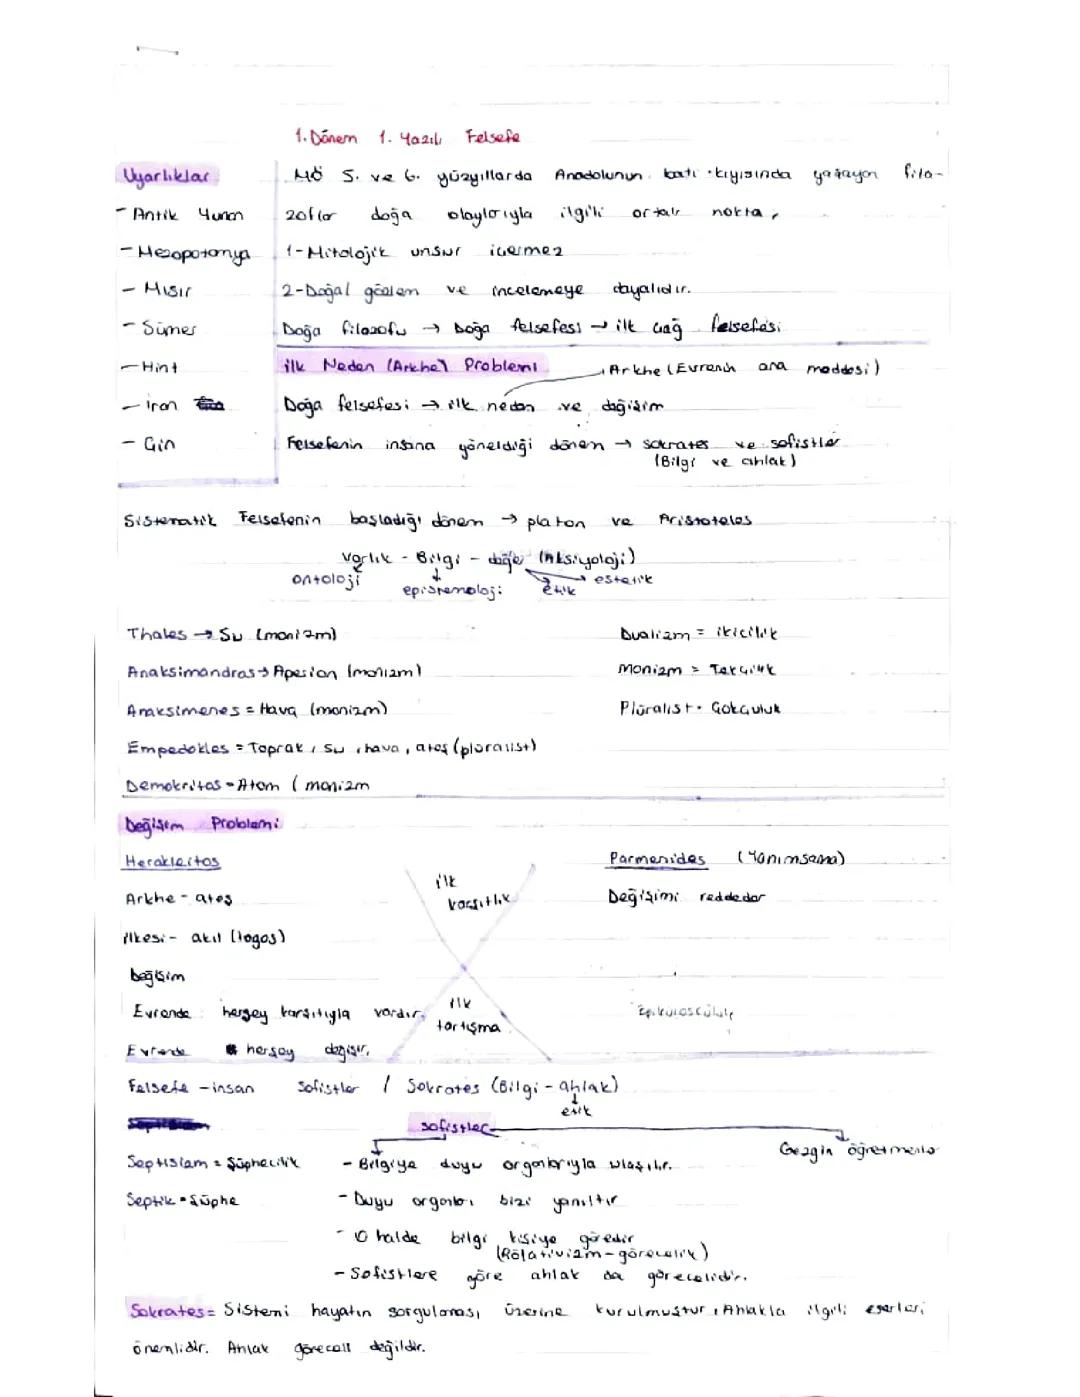 1. Dönem 1. Yazılı Felsefe
Uyarlıklar
- Antik Yunan
- Mezopotamya
- Mısır
- Sümer
- Hint
- İran
- Çin
MÖ 5. ve 6. yüzyıllarda Anadolunun batı kıyısında yaşayan filo-
zoflar doğa olaylarıyla ilgili ortak nokta,
1- Mitolojik unsur içermez
2- Doğal gözlem ve incelemeye dayalıdır.
Doğa filozofu → Doğa felsefesi → ilk çağ felsefesi
İlk Neden (Arkhe) Problemi
Arkhe (Evrenin ana maddesi)
Doğa felsefesi → ilk neden ve değişim
Felsefenin insana yöneldiği dönem → sokrates ve sofistler
(Bilgi ve ahlak)
Sistematik Felsefenin başladığı dönem → platon ve Aristoteles
varlık - Bilgi - değer (Aksiyoloji)
ontoloji epistemoloji etik estetik
Thales → Su (monizm)
Anaksimandros → Apeiron (monizm)
Anaksimenes = Hava (monizm)
Empedokles = Toprak, su, hava, ateş (plüralist)
Demokritos - Atom (monizm
Dualizm = ikicilik
Monizm = Tekçilik
Plüralist - Çokçuluk
Değişim Problemi
Herakleitos
Arkhe - ateş
ilkesi - akıl (logos)
Değişim
Evrende herşey karşıtıyla vardır.
Evrende herşey değişir.
ilk karşıtlık
ilk tartışma
Parmenides (Yanımsama)
Değişimi reddeder
Epikurosçuluk
Felsefe - insan Sofistler / Sokrates (Bilgi - ahlak)
etik
Sofistler
Gezgin öğretmenler
Septisizm = Şüphecilik
Septik = Şüphe
- Bilgiye duyu organlarıyla ulaşılır.
- Duyu organları bizi yanıltır
- O halde bilgi kişiye göredir
(Rölativizm - görecelik)
- Sofistlere göre ahlak da görecelidir.
Sokrates = Sistemi hayatın sorgulanası üzerine kurulmuştur, Ahlakla ilgili eserleri
önemlidir. Ahlak göreceli değildir.